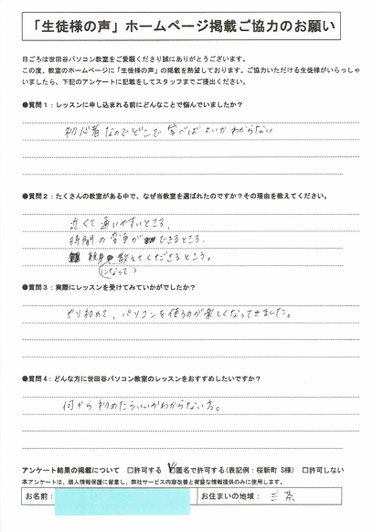 「生徒様の声」ホームページ掲載ご協力のお願い
日ごろは世田谷パソコン教室をご愛顧くださり誠にありがとうございます。
この度、教室のホームページに「生徒様の声」の掲載を熱望しております。ご協力いただける生徒様がいらっしゃ
いましたら、下記のアンケートに記載をしてスタッフまでご提出ください。
●質問1：レッスンに申し込まれる前にどんなことで悩んでいましたか？
初心者なのでどこで学べばよいかわからない
●質問2：たくさんの教室がある中で、なぜ当教室を選ばれたのですか？その理由を教えてください。
近くて通いやすいところ。
時間の変更ができるところ。
親身になって教えてくださるところ。
●質問3：実際にレッスンを受けてみていかがでしたか？
やり初めて、パソコンを使うのが楽しくなってきました。
●質問4：どんな方に世田谷パソコン教室のレッスンをおすすめしたいですか？
何から初めたらいいかわからない方。
アンケート結果の掲載について □許可する ☑匿名で許可する(表記例：桜新町 S様) □許可しない
本アンケートは、個人情報保護に留意し、弊社サービス内容改善と有益な情報提供のみに使用します。
お名前： お住まいの地域： 三茶